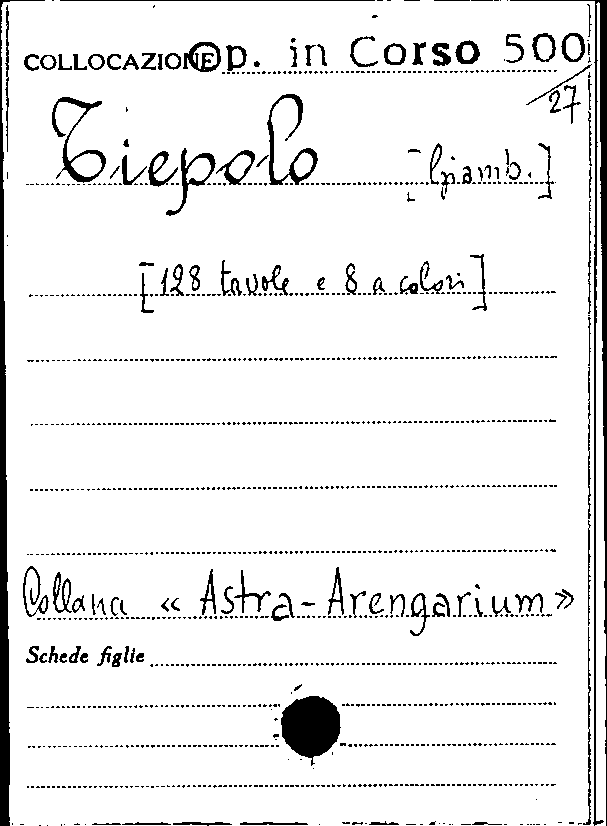 COLLOCAZIONE Op. in Corso 500
27
Tiepolo [Gjamb.]
[128 tavole e 8 a colori]
Collana « Astra-Arengarium »
Schede figlie